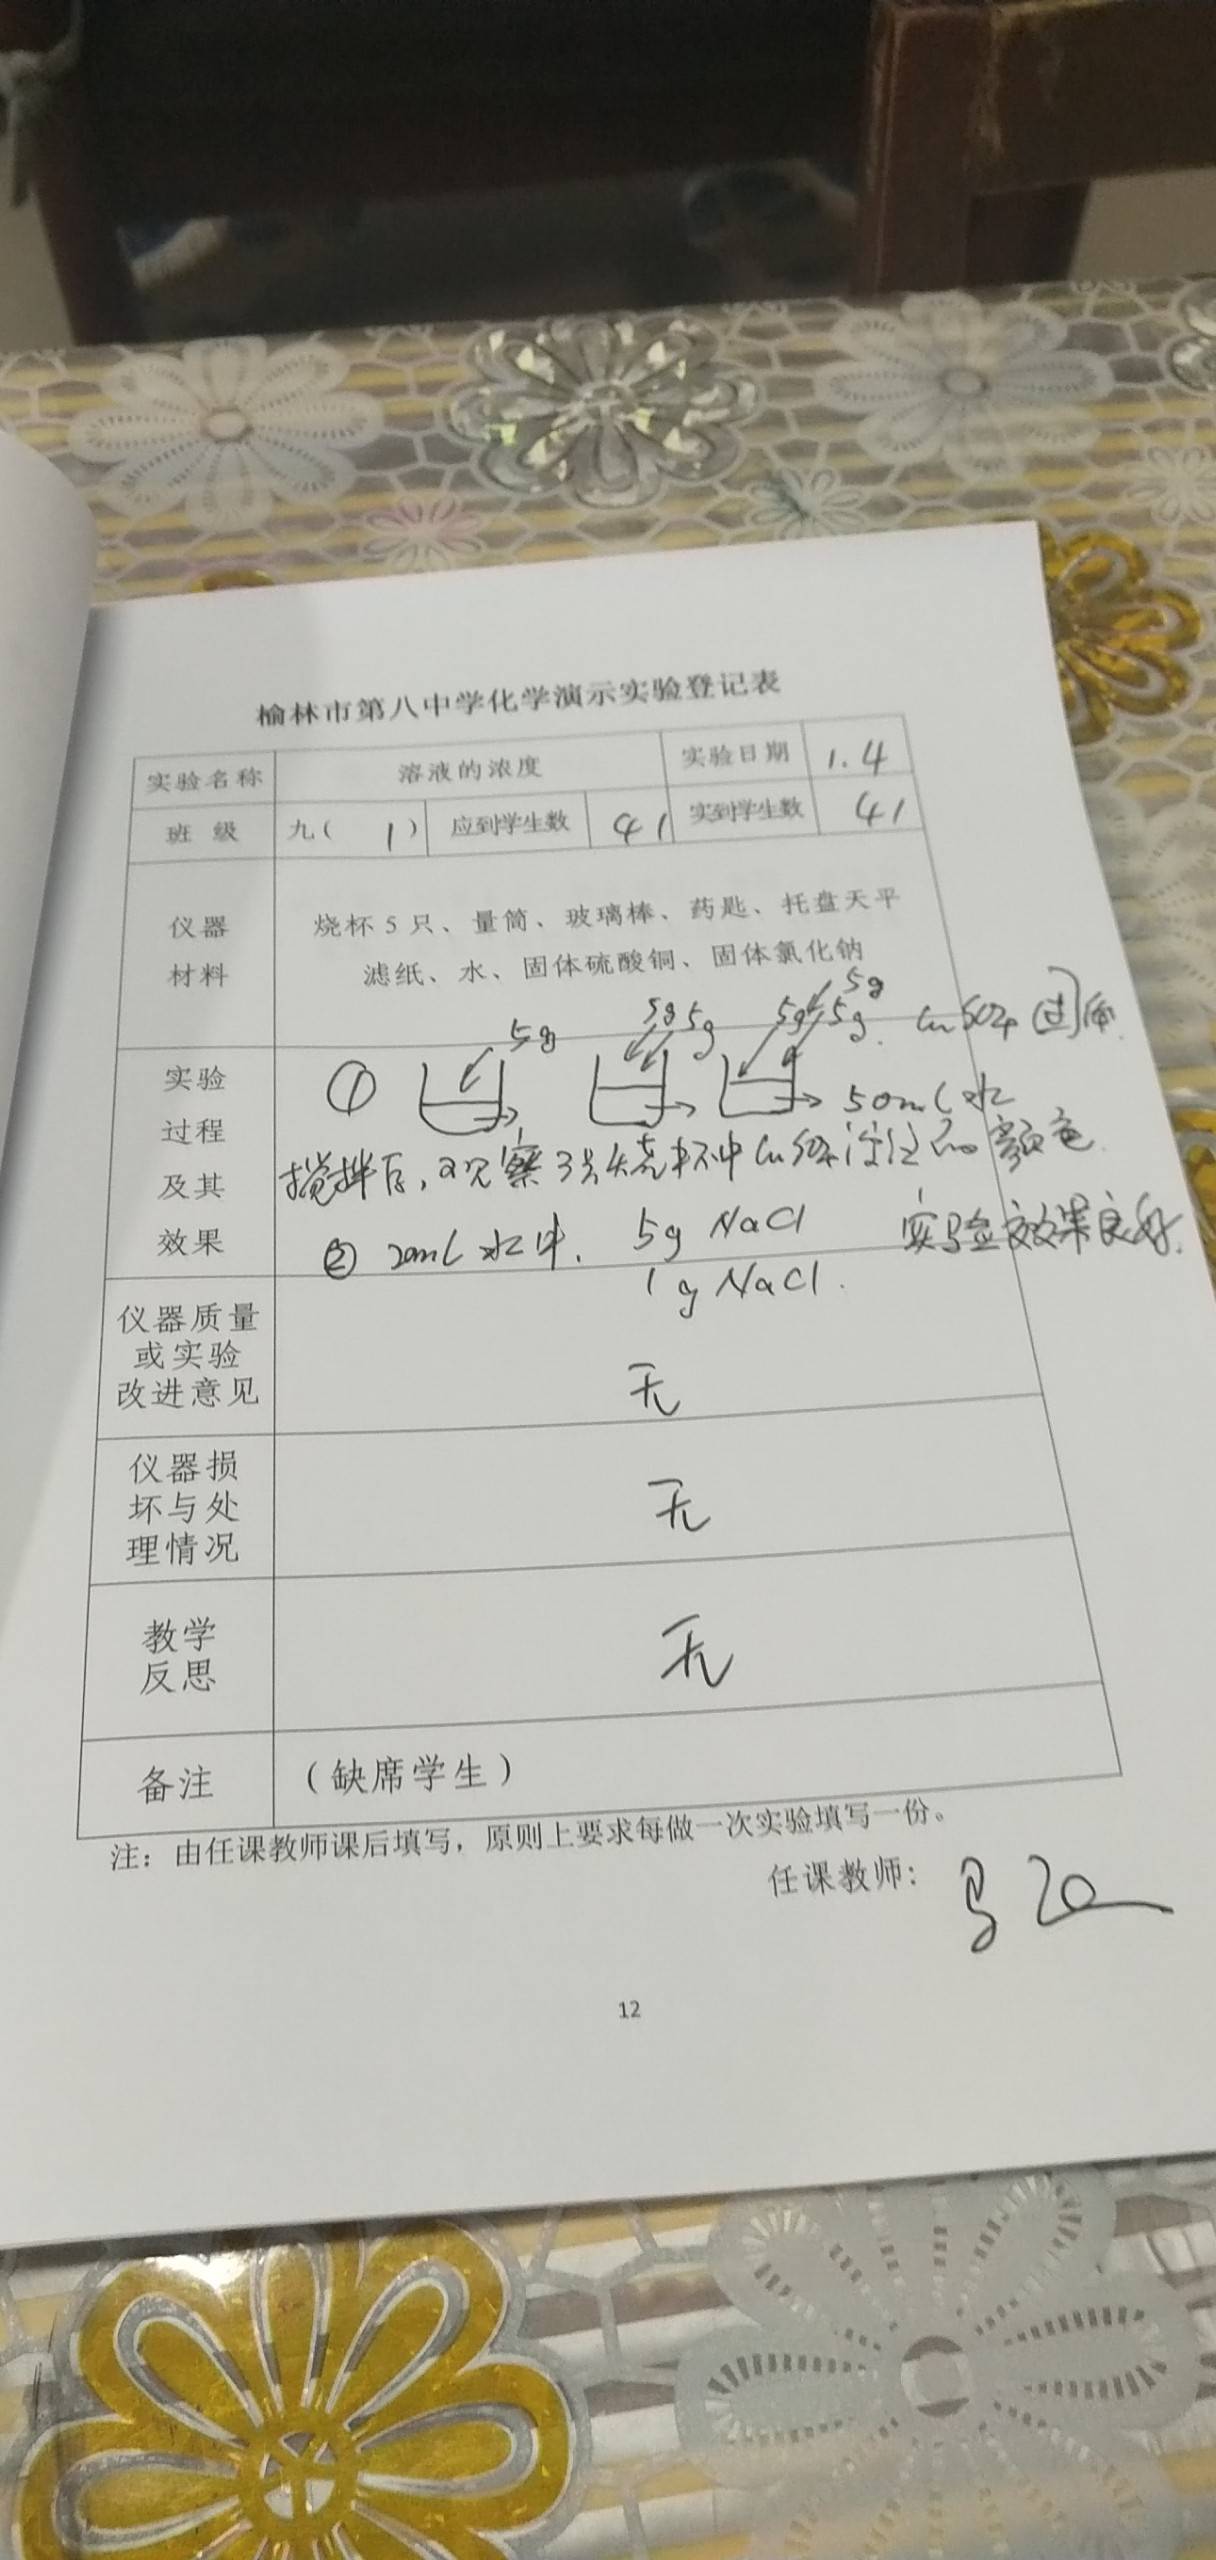 榆林市第八中学化学演示实验登记表
实验名称 溶液的浓度 实验日期 1.4
班 级 九( 1 ) 应到学生数 41 实到学生数 41
仪器
材料
烧杯 5 只、量筒、玻璃棒、药匙、托盘天平
滤纸、水、固体硫酸铜、固体氯化钠
实验
过程
及其
效果
5g
5g 5g 5g 5g 5g CuSO4 固体
① 50mL水
搅拌后,观察3只烧杯中CuSO4溶液的颜色.
② 20mL水中. 5g NaCl 实验效果良好.
1g NaCl.
仪器质量
或实验
改进意见
无
仪器损
坏与处
理情况
无
教学
反思
无
备注 (缺席学生)
注：由任课教师课后填写，原则上要求每做一次实验填写一份。
任课教师：
12